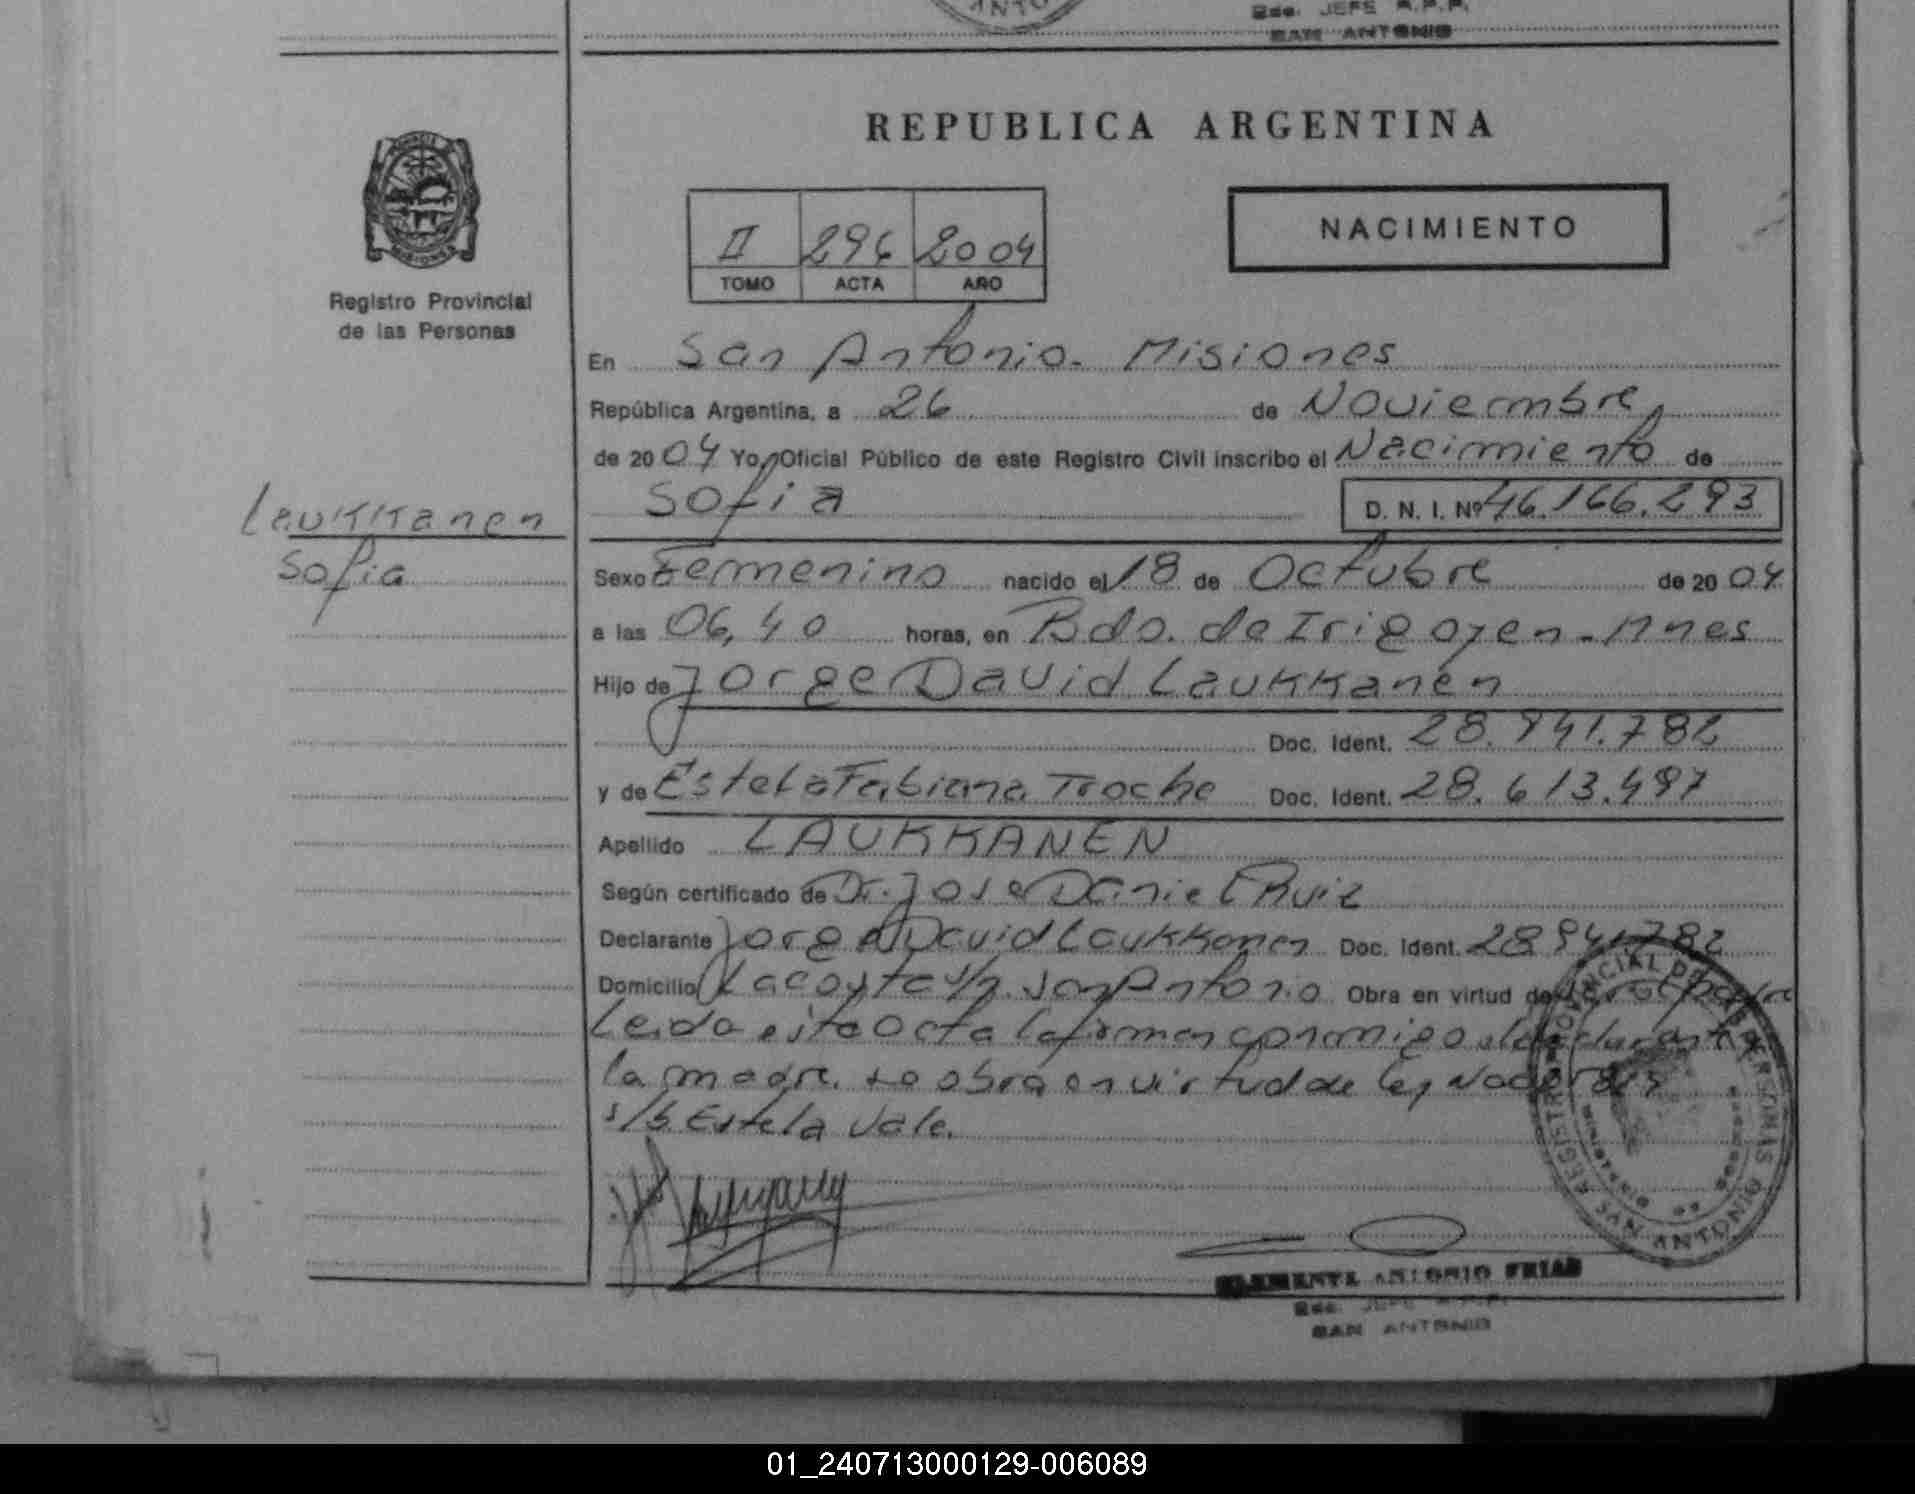 Bdo. JEFE R.P.P.
SAN ANTONIO
REPUBLICA ARGENTINA
II 296 2004
TOMO ACTA AÑO
NACIMIENTO
Registro Provincial
de las Personas
En San Antonio. Misiones
República Argentina, a 26 de Noviembre
de 2004 Yo, Oficial Público de este Registro Civil inscribo el Nacimiento de
Sofia D. N. I. Nº 46.166.293
Laukkanen
Sofia
Sexo Femenino nacido el 18 de Octubre de 2004
a las 06,40 horas, en Bdo. de Irigoyen - Mnes
Hijo de Jorge David Laukkanen
Doc. Ident. 28.941.782
y de Estela Fabiana Troche Doc. Ident. 28.613.497
Apellido LAUKKANEN
Según certificado de Dr. Jose Daniel Ruiz
Declarante Jorge David Laukkanen Doc. Ident. 28.941.782
Domicilio Lacosta s/n. San Antonio Obra en virtud de
Leida esta acta la firman conmigo el declarante y
la madre. no obra en virtud de ley
s/b Estela Vale.
REGISTRO PROVINCIAL DE LAS PERSONAS
SAN ANTONIO
CLEMENTE ANTONIO FRIAS
Bdo. JEFE R.P.P.
SAN ANTONIO
01_240713000129-006089